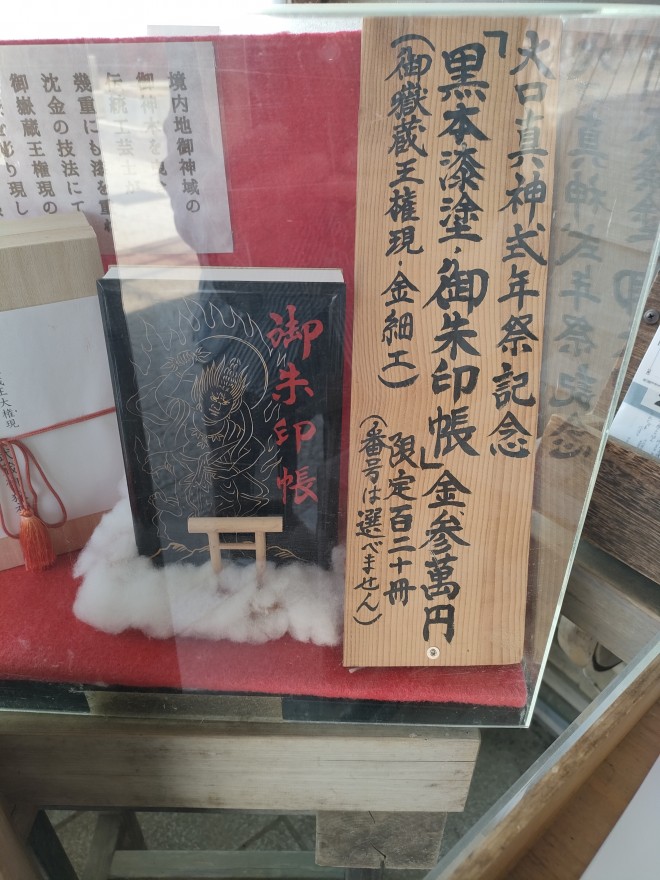 大口真神式年祭記念
「黒本漆塗・御朱印帳」金参萬円
(御嶽蔵王権現・金細工)
限定百二十冊
(番号は選べません)
御朱印帳
境内地御神域の
御神木を
伝統工芸士
幾重にも漆を重ね
沈金の技法にて
御嶽蔵王権現の
彫り現し
王大権現